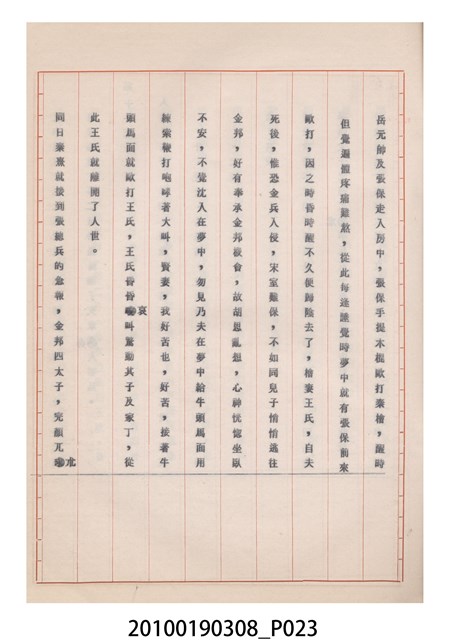 岳元帥及張保走入房中，張保手提木棍毆打秦檜，醒時
但覺週體疼痛難熬，從此每逢睡覺時夢中就有張保前來
毆打，因之時昏時醒不久便歸陰去了，檜妻王氏，自夫
死後，惟恐金兵入侵，宋室難保，不如同兒子悄悄逃往
金邦，好有奉承金邦機會，故胡思亂想，心神恍惚坐臥
不安，不覺沈入在夢中，勿見乃夫在夢中給牛頭馬面用
鐵索鞭打咆哮著大叫，賢妻，我好苦也，好苦，接著牛
頭馬面就毆打王氏，王氏昏昏哀叫驚動其子及家丁，從
此王氏就離開了人世。
同日秦熹就接到張總兵的急報，金邦四太子，完顏兀朮
20100190308_P023